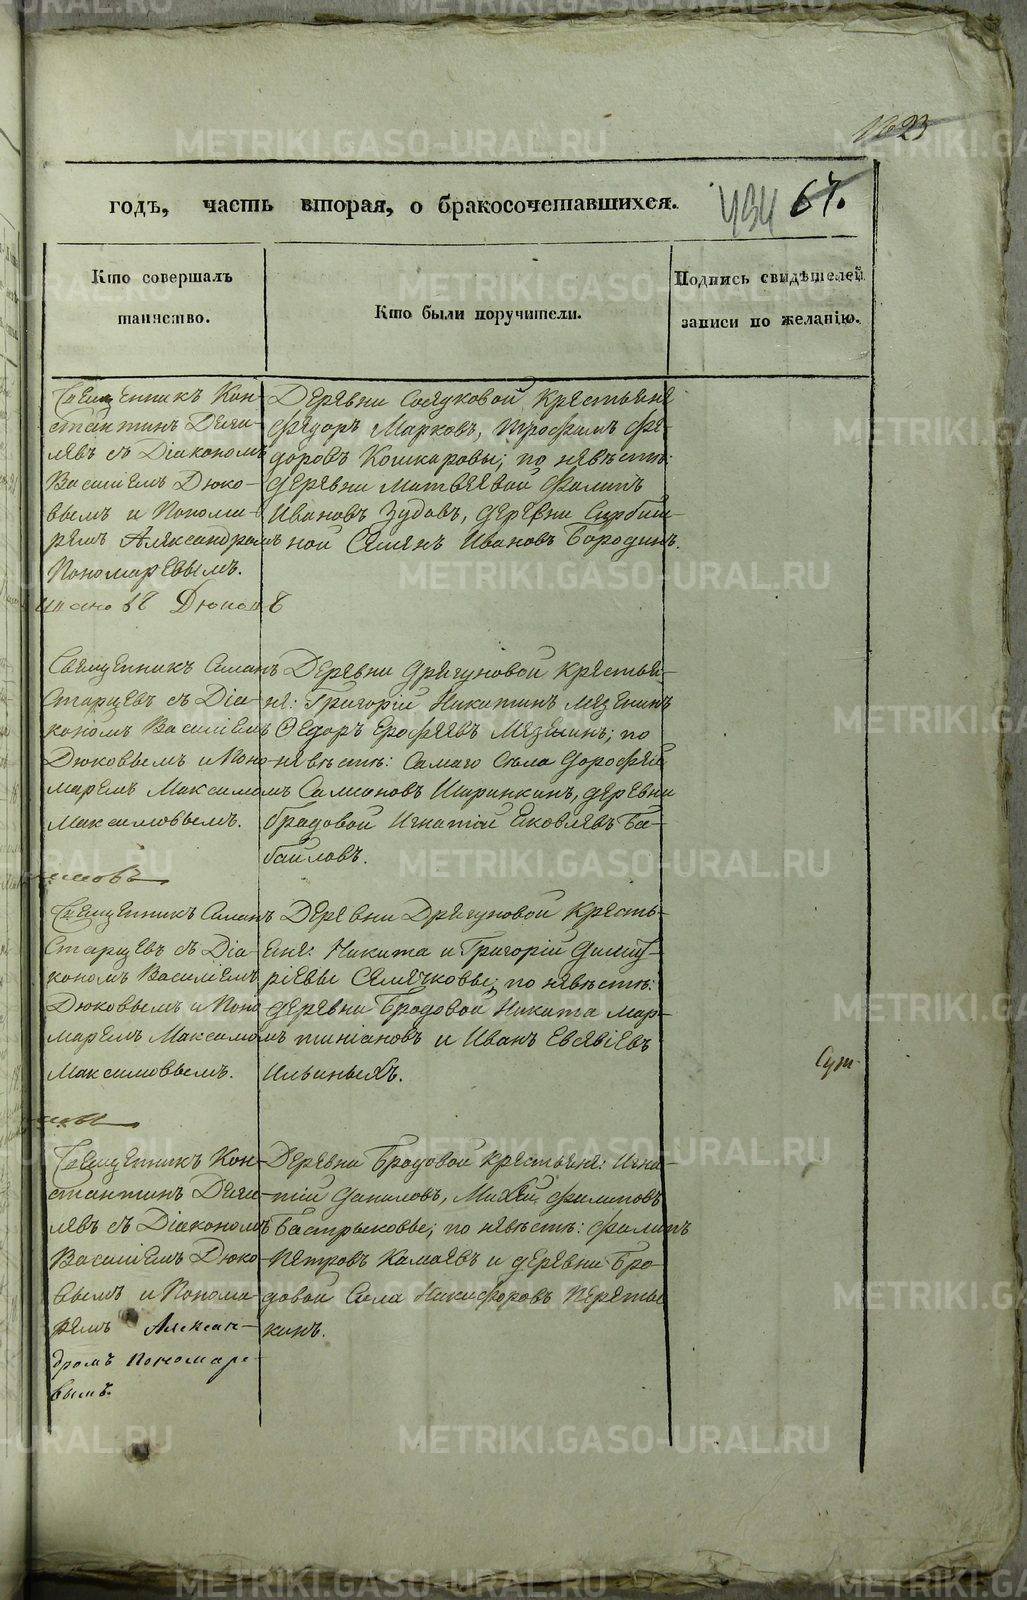 1023
годъ, часть вторая, о бракосочетавшихся.
434 67.
Кто совершалъ
таинство.
Кто были поручители.
Подпись свидѣтелей
записи по желанію.
Священникъ Кон-
стантинъ
съ Діакономъ
Василіемъ Дюко-
вымъ и Понома-
ремъ Александромъ
Пономаревымъ.
Деревни крестьяне
Федоръ Марковъ, Трофимъ Фе-
доровъ Кошкаровы; по невѣстѣ:
деревни Матвеевой Филипъ
Ивановъ Зудовъ, деревни
ной Семенъ Ивановъ Бородинъ.
Священникъ Симанъ
Старцевъ съ Діа-
кономъ Василіемъ
Дюковымъ и Поно-
маремъ Максимомъ
Максимовымъ.
Деревни Дрягуновой Крестья-
не: Григорій Никитинъ Мезенинъ
Ѳедоръ Ерофеевъ Мезенинъ; по
невѣстѣ: Самаго Села Дорофей
Самсоновъ Ширинкинъ, деревни
Бродовой Игнатій Яковлевъ Ба-
баиловъ.
Священникъ Симанъ
Старцевъ съ Діа-
кономъ Василіемъ
Дюковымъ и Поно
маремъ Максимомъ
Максимовымъ.
Деревни Дрягуновой Кресть-
яне: Никита и Григорій Дмит-
ріевы Семячковы; по невѣстѣ:
деревни Бродовой Никита Мар-
тиніановъ и Иванъ
Ильиныхъ.
Священникъ Кон-
стантинъ
съ Діакономъ
Василіемъ Дюко-
вымъ и Понома-
ремъ Алексан-
дромъ Пономаре-
вымъ.
Деревни Бродовой крестьяне: Игна-
тій Даниловъ, Михей Филиповъ
Бастрыковы; по невѣстѣ: Филипъ
Петровъ Камаевъ и деревни Бро-
довой Сила Никифоровъ
кинъ.
METRIKI.GASO-URAL.RU